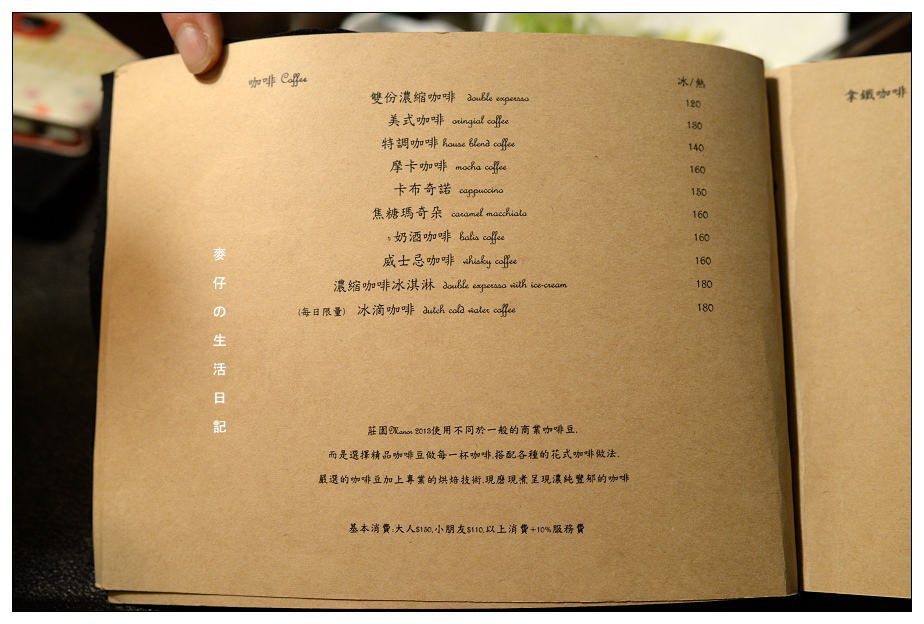 咖啡 Coffee
冰/熱
雙份濃縮咖啡 double expersso 120
美式咖啡 oringial coffee 130
特調咖啡 house blend coffee 140
摩卡咖啡 mocha coffee 160
卡布奇諾 cappuccino 150
焦糖瑪奇朵 caramel macchiato 160
奶酒咖啡 balis coffee 160
威士忌咖啡 whisky coffee 160
濃縮咖啡冰淇淋 double expersso with ice-cream 180
(每日限量) 冰滴咖啡 dutch cold water coffee 180
莊園Manor 2013使用不同於一般的商業咖啡豆,
而是選擇精品咖啡豆做每一杯咖啡,搭配各種的花式咖啡做法.
嚴選的咖啡豆加上專業的烘焙技術,現磨現煮呈現濃純豐郁的咖啡
基本消費:大人$150,小朋友$110,以上消費+10%服務費
麥仔の生活日記
拿鐵咖啡